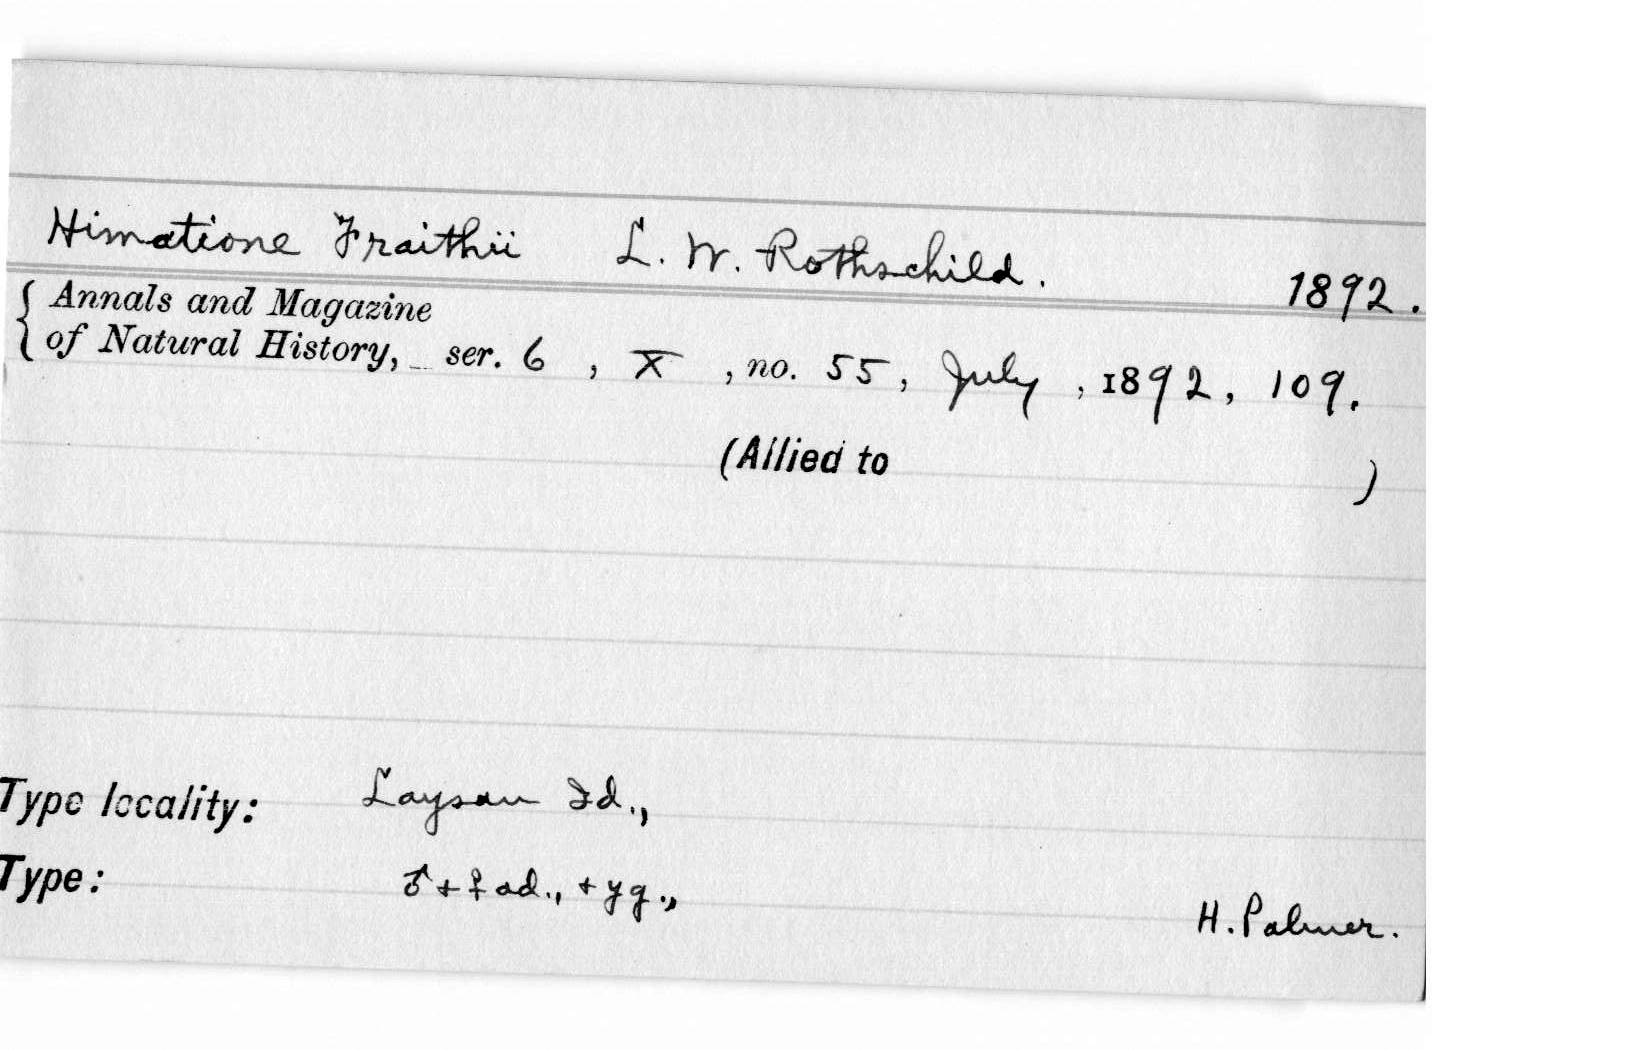 Himatione Fraithii L. W. Rothschild. 1892.
{ Annals and Magazine
of Natural History, ser. 6, X, no. 55, July, 1892, 109.
(Allied to )
Type locality: Laysan Id.,
Type: ♂ + ♀ ad., + yg.,
H. Palmer.